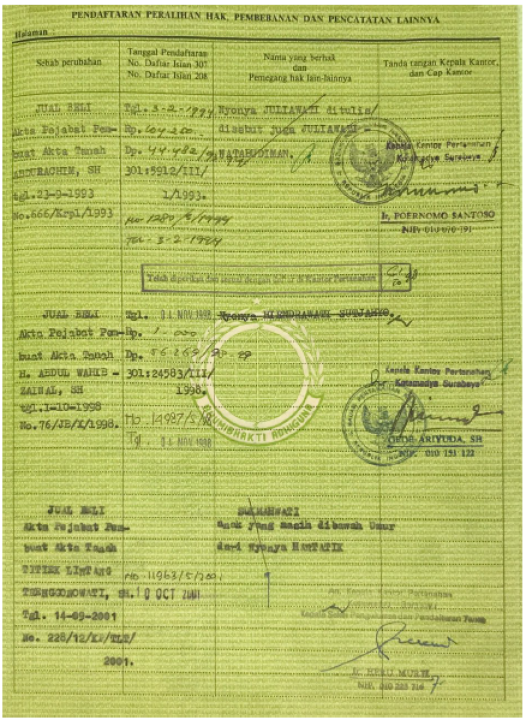 PENDAFTARAN PERALIHAN HAK, PEMBEBANAN DAN PENCATATAN LAINNYA
Halaman
Sebab perubahan
Tanggal Pendaftaran
No. Daftar Isian 307
No. Daftar Isian 208
Nama yang berhak
dan
Pemegang hak lain-lainnya
Tanda tangan Kepala Kantor,
dan Cap Kantor
JUAL BELI
Akta Pejabat Pem-
buat Akta Tanah
ABDURACHIM, SH
tgl.23-9-1993
No.666/Krpl/1993
Tgl. 3-2-1994
Rp.
Dp. 44.482/
301:5912/III/
1/1993.
No 1280/5/1994
Tgl - 3-2-1994
Nyonya JULIAWATI ditulis/
disebut juga JULIAWATI -
NATABUDIMAN.
Kepala Kantor Pertanahan
Kotamadya Surabaya
Ir. POERNOMO SANTOSO
NIP. 010 070 191
Telah diperiksa dan sesuai dengan daftar di Kantor Pertanahan
JUAL BELI
Akta Pejabat Pem-
buat Akta Tanah
H. ABDUL WAHIB -
ZAINAL, SH
tgl.1-10-1998
No.76/JB/X/1998.
Tgl. 04 NOV 1998
Rp. 1.000
Dp. 56269/
301:24583/III/
1998.
No 14987/5/98
Tgl. 04 NOV 1998
Nyonya HIENDRAWATI SUTJAHYO.
Kepala Kantor Pertanahan
Kotamadya Surabaya
ARIYUDA, SH
NIP. 010 151 122
BHUMIBHAKTI ADHIGUNA
JUAL BELI
Akta Pejabat Pem-
buat Akta Tanah
TITIEK LINTANG
Tgl. 14-09-2001
No. 228/12/KP/TLT/
2001.
No 11963/5/2001
10 OCT 2001
SUKMAWATI
anak yang masih dibawah Umur
dari Nyonya HARTATIK
An. Kepala Kantor Pertanahan